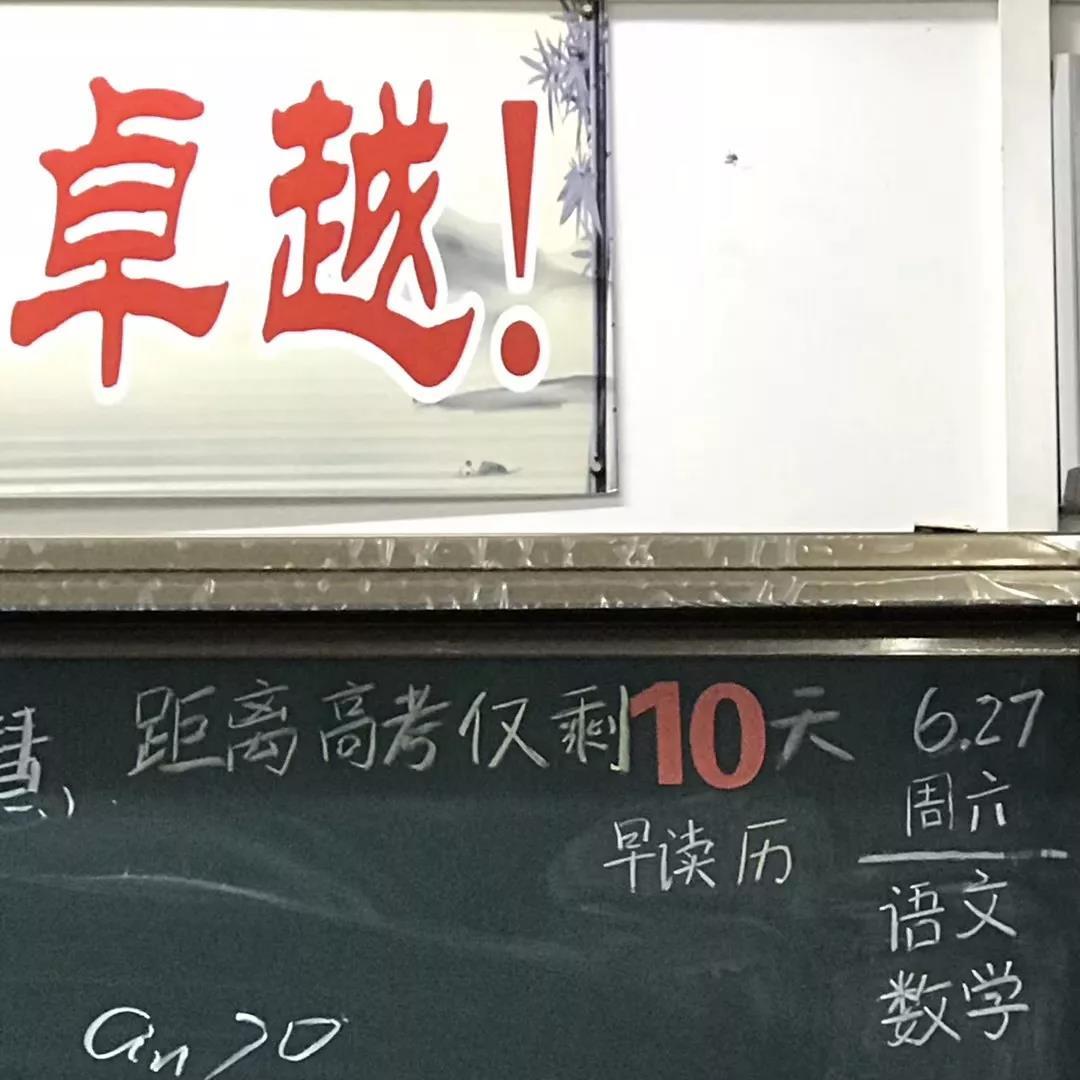 卓越!
慧
距离高考仅剩10天
6.27
周六
早读 历
语文
数学
an>0